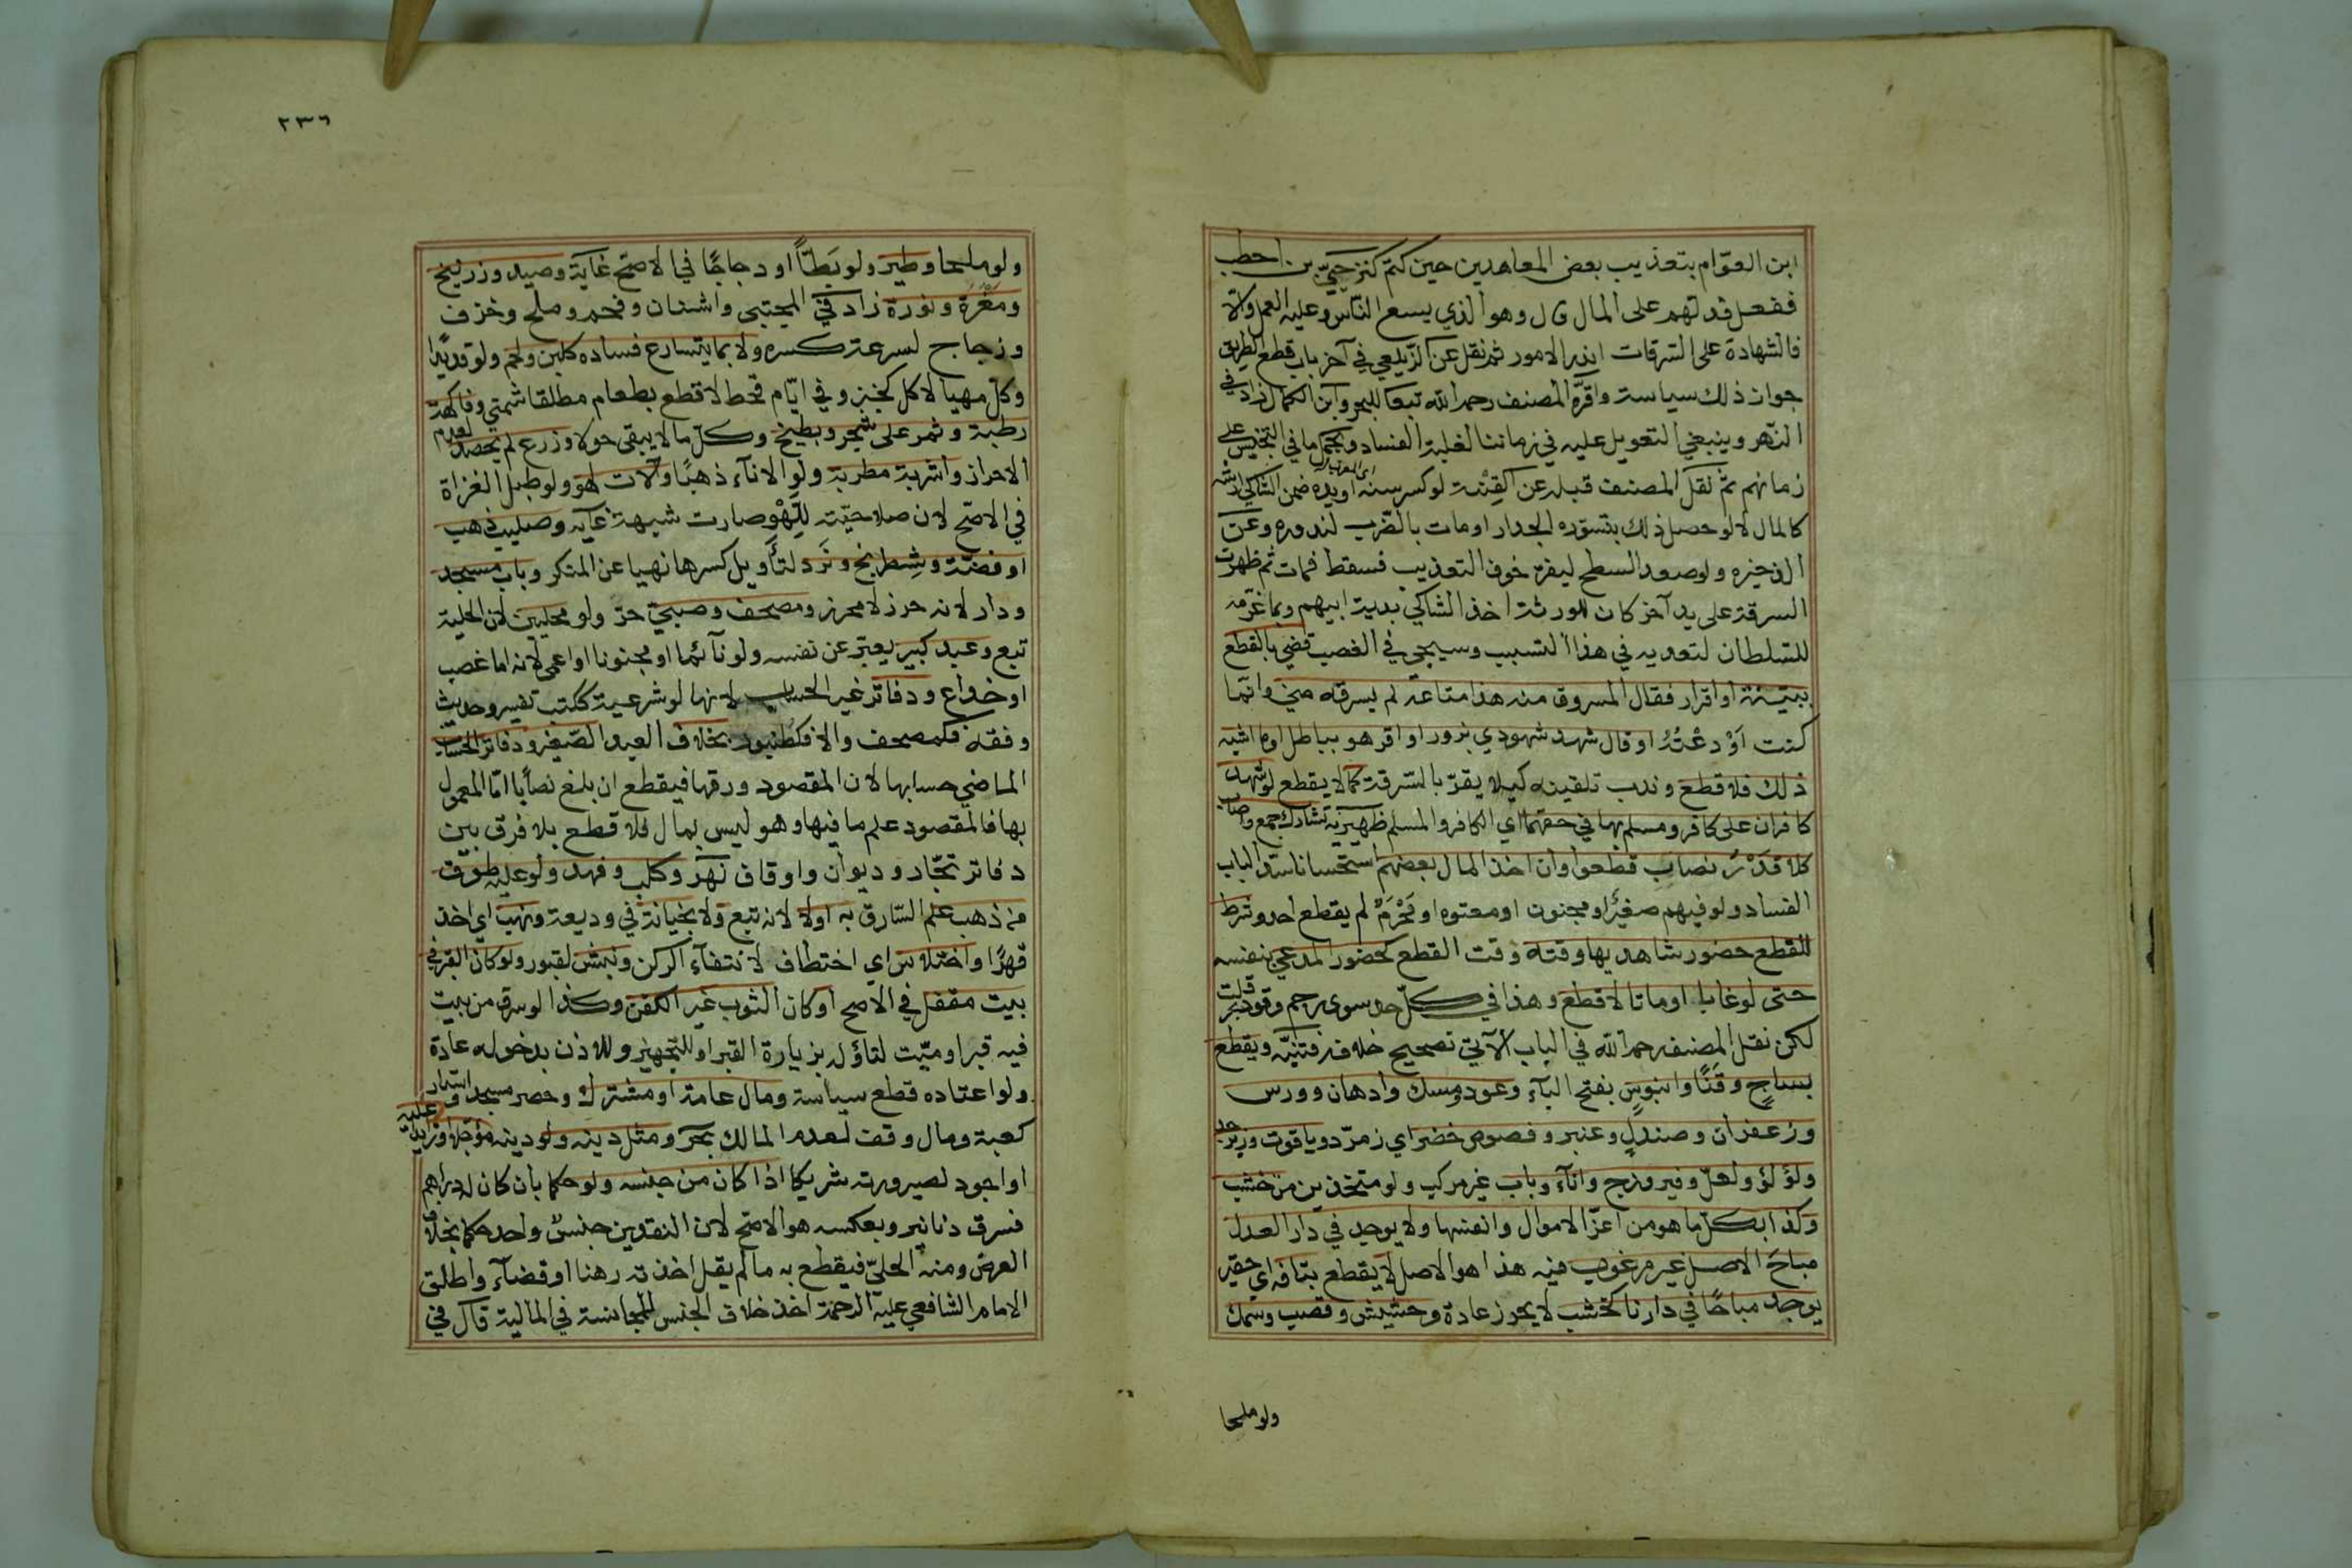 ابن العوّام بتعذيب بعض المعاهدين حين كتم كنز حيّ بن احطب
ففعل فدلهم على المال قال وهو الذي يسع الناس وعليه العمل والا
فالشهادة على السرقات اندر الامور ثم نقل عن الزيلعي في آخر باب قطع الطريق
جواز ذلك سياسة واقرّه المصنف رحمه الله تبعا للبحر وابن الكمال زاد في
النهر وينبغي التعويل عليه في زماننا لغلبة الفساد ويحمل ما في التجنيس على
زمانهم ثم نقل المصنف قبله عن القنية لو كسر سنه او يده ضمن الشاكي ارشه
كالمال لا لو حصل ذلك بتسوره الجدار او مات بالضرب لندوره وعن
الذخيره ولو صعد السطح ليفر خوف التعذيب فسقط فمات ثم ظهرت
السرقة على يد آخر كان للورثة اخذ الشاكي بدية ابيهم وبما غرمه
للسلطان لتعديه في هذا التسبب وسيجي في الغصب قضي بالقطع
ببيّنة او اقرار فقال المسروق منه هذا متاعه لم يسرقه مني وانما
كنت اَوْدعْتُهُ او قال شهد شهودي بزور او اقر هو بباطل او ما اشبه
ذلك فلا قطع وندب تلقينه كيلا يقرّ بالسرقة كما لا يقطع لو شهد
كافران على كافر ومسلم بها في حقهما اي الكافر والمسلم ظهيريه تشارك جمع واصاب
كلا قدْرُ نصاب قطعوا وان اخذ المال بعضهم استحسانا سدا لباب
الفساد ولو فيهم صغير او مجنون او معتوه او مَحْرَمٌ لم يقطع احد وشرط
للقطع حضور شاهديها وقته وقت القطع كحضور المدعي بنفسه
حتى لو غابا او ماتا لا قطع وهذا في كلّ حد سوى رجم وقود بحر قلت
لكن نقل المصنف رحمه الله في الباب الآتي تصحيح خلافه فتنبّه ويقطع
بساجٍ وقَنًا وابنوسٍ بفتح الباء وعود ومسك وادهان وورس
وزعفران وصندلٍ وعنبر وفصوص خضر اي زمرّد وياقوت وزبرجد
ولؤلؤ ولعلّ وفيروزج واناء وباب غير مركب ولو متخذين من خشب
وكذا بكلّ ما هو من اعزّ الاموال وانفسها ولا يوجد في دار العدل
مباحَ الاصل غير مرغوب فيه هذا هو الاصل لا يقطع بتافه اي حقير
يوجد مباحًا في دارنا كخشب لا يحرز عادة وحشيش وقصب وسمك
ولو ملحا
٢٣٦
ولو ملحا وطير ولو بَطّاً او دجاجًا في الاصح غاية وصيد وزرنيخ
ومغرة ونورة زاد في المجتبى واشنان وفحم وملح وخزف
وزجاج لسرعة كسره ولا بما يتسارع فساده كلبن ولحم ولو قديدًا
وكل مهيا لاكل كخبز وفي ايّام قحط لا قطع بطعام مطلقا شمني وفاكهة
رطبة وثمر على شجر وبطيخ وكلّ ما لا يبقى حولا وزرع لم يحصد لعدم
الاحراز واشربة مطربة ولو الاناء ذهبًا وآلات لهو ولو طبل الغزاة
في الاصح لان صلاحيّته لِلّهْوِ صارت شبهة غايه وصليب ذهب
او فضّة وشطرنج ونَرْد لتأويل كسرها نهيا عن المنكر وباب مسجد
ودار لانه حرز لا محرز ومصحف وصبيّ حرّ ولو محليين لان الحلية
تبع وعبد كبير يعبّر عن نفسه ولو نآئما او مجنونا او اعمى لانه اما غصب
او خداع ودفاتر غير الحساب لانها لو شرعية ككتب تفسير وحديث
وفقه فكمصحف والا فكطنبور بخلاف العبد الصغير ودفاتر الحساب
الماضي حسابها لان المقصود ورقها فيقطع ان بلغ نصابًا امّا المعمول
بها فالمقصود علم ما فيها وهو ليس بمال فلا قطع بلا فرق بين
دفاتر تجّار وديوان واوقاف نهر وكلب وفهد ولو عليه طوق
من ذهب علم السّارق به اولا لانه تبع ولا بخيانة في وديعة ونهب اي اخذ
قهرًا واختلاس اي اختطاف لانتفاء الركن ونبش لقبور ولو كان القبر في
بيت مقفل في الاصح او كان الثوب غير الكفن وكذا لو سرق من بيت
فيه قبر او ميّت لتاؤله بزيارة القبر او للتجهيز وللاذن بدخوله عادة
ولو اعتاده قطع سياسة ومال عامة او مشترك وحصر مسجد واستار
كعبة ومال وقف لعدم المالك بحر ومثل دينه ولو دينه مؤجلا او زايدا عليه
او اجود لصيرورته شريكا اذا كان من جنسه ولو حكما بان كان له دراهم
فسرق دنانير وبعكسه هو الاصح لان النقدين جنسٌ واحد حكما بخلاف
العرض ومنه الحليّ فيقطع به ما لم يقل اخذته رهنا او قضآء واطلق
الامام الشافعي عليه الرحمة اخذ خلاف الجنس للمجانسة في المالية قال في